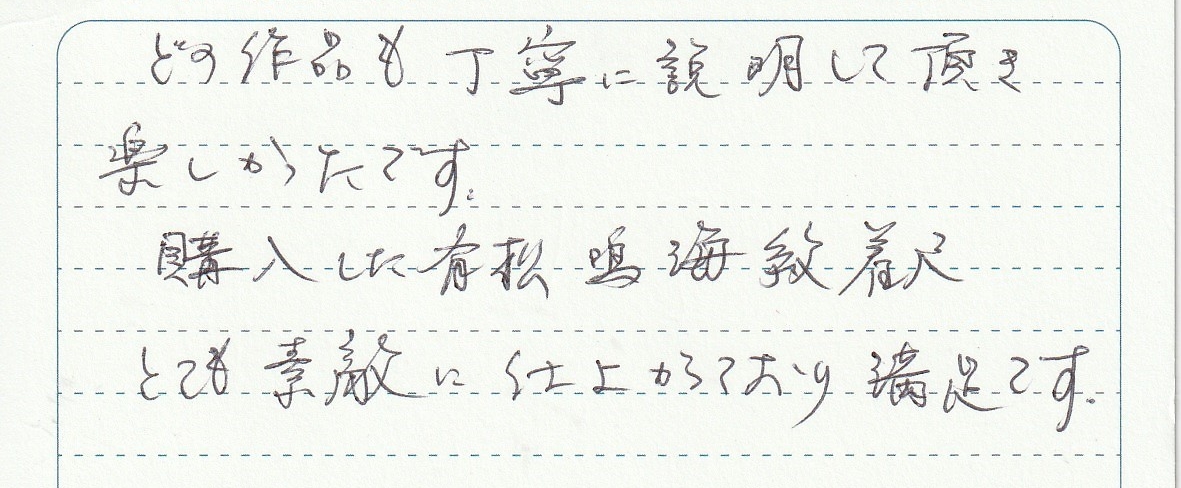 どの作品も丁寧に説明して頂き
楽しかったです。
購入した有松鳴海絞着尺
とても素敵に仕上がっており満足です。